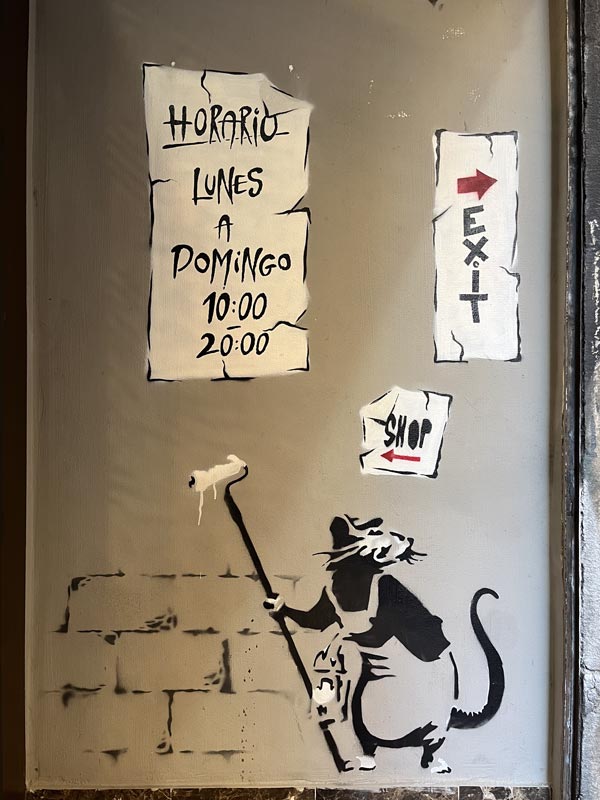 HORARIO
LUNES
A
DOMINGO
10:00
20:00
EXIT
SHOP